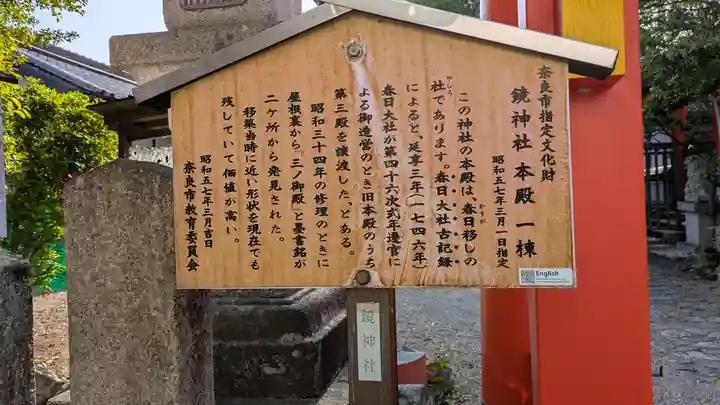 奈良市指定文化財
鏡神社本殿 一棟
昭和五七年三月一日指定
この神社の本殿は、春日移しの
かすが
社であります。春日大社古記録
やしろ
によると、延享三年(一七四六年)
春日大社が第四十六次式年造宮に
よる御造営のとき旧本殿のうち
第三殿を譲渡した、とある。
昭和三十四年の修理のときに
屋根裏から『三ノ御殿』と墨書銘が
二ヶ所から発見された。
移築当時に近い形状を現在でも
残していて価値が高い。
昭和五七年三月吉日
奈良市教育委員会
English
鏡神社